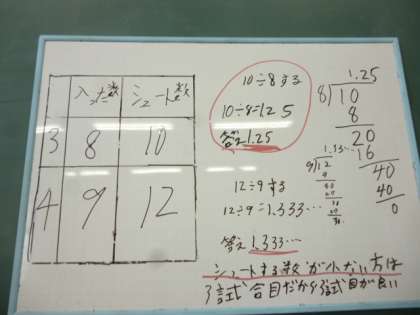 入った数 シュート数
3 8 10
4 9 12
10÷8する
10÷8=1.25
答え1.25
12÷9する
12÷9=1.333…
答え1.333…
1.25
8)10
8
20
16
40
40
0
1.33…
9)12
9
30
27
30
27
30
シュートする数が少ない方は
3試合目だから3試合目が良い